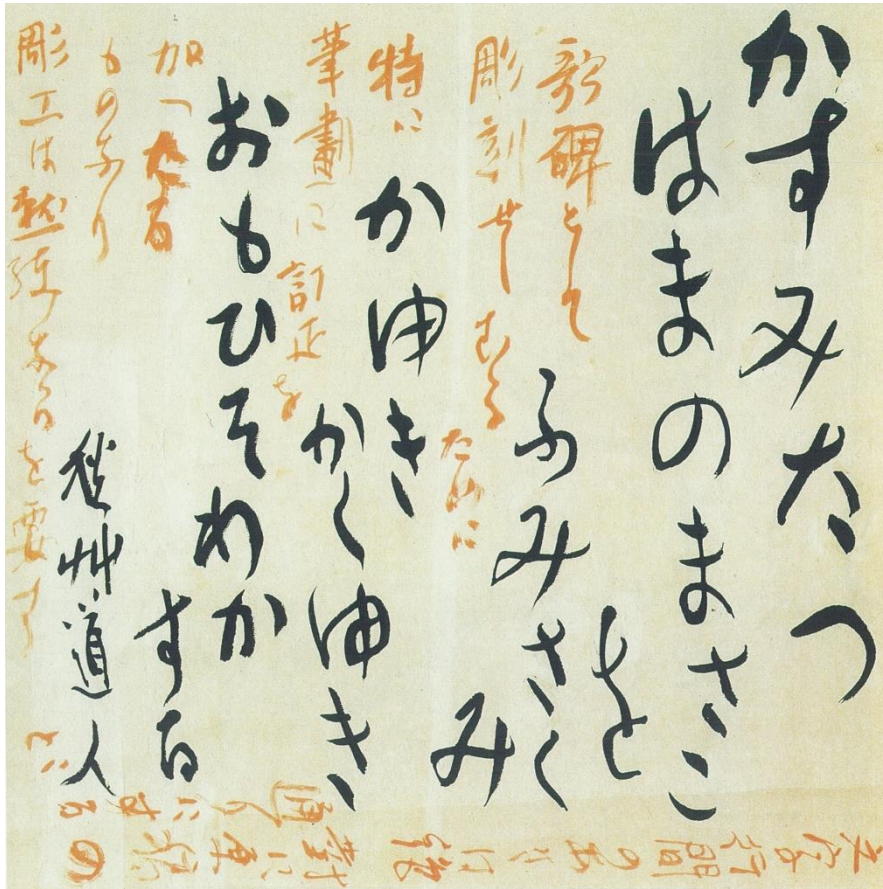 かすみたつ
はまのまさこ
を
ふみさく
み
かゆき
かくゆき
おもひそわか
する
秋艸道人
歌碑として
彫刻せしむるために
特に
筆畫に訂正を
加へたる
ものなり
彫工は熟練なるを要す
行間のあきは絶
對に